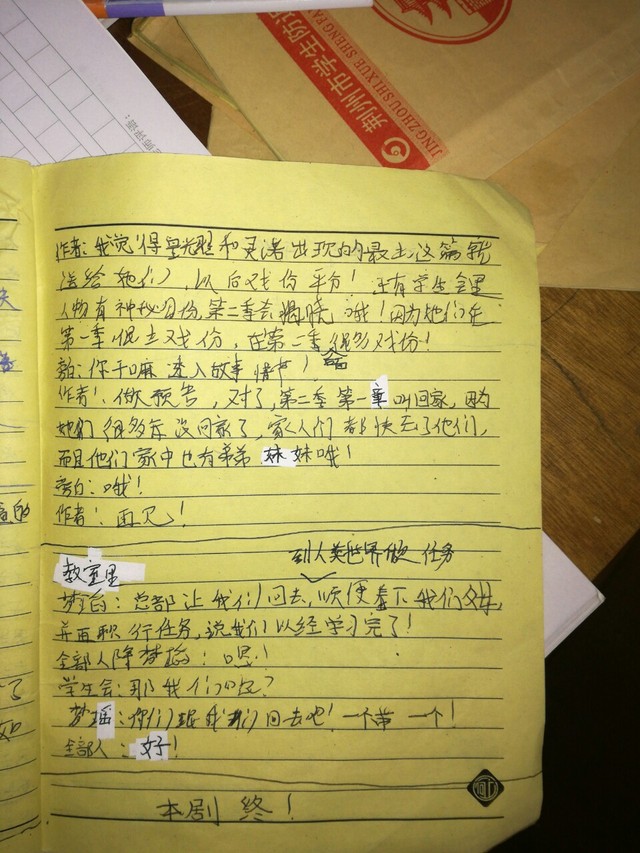 荆州市学生防近
JING ZHOU SHI XUE SHENG FA
作者:我觉得星光耀和灵诺出现的最少,这篇就
送给她们,以后戏份平分!还有学生会里
人物有神秘身份,第二季会揭晓哦!因为她们在
第一季很少戏份,在第二季很多戏份!
旁白:你干嘛进入故事情节!
作者:做预告,对了,第二季第一章叫回家,因为
她们很多年没回家了,家人们都快忘了他们,
而且他们家中也有弟弟妹妹哦!
旁白:哦!
作者:再见!
到人类世界做任务
教室里
总部让我们回去,顺便看下我们父母,
并再职行任务,说我们以经学习完了!
全部人降梦瑶:嗯!
学生会:那我们呢?
梦瑶:你们跟我们回去吧!一个带一个!
全部人:好!
本剧终!